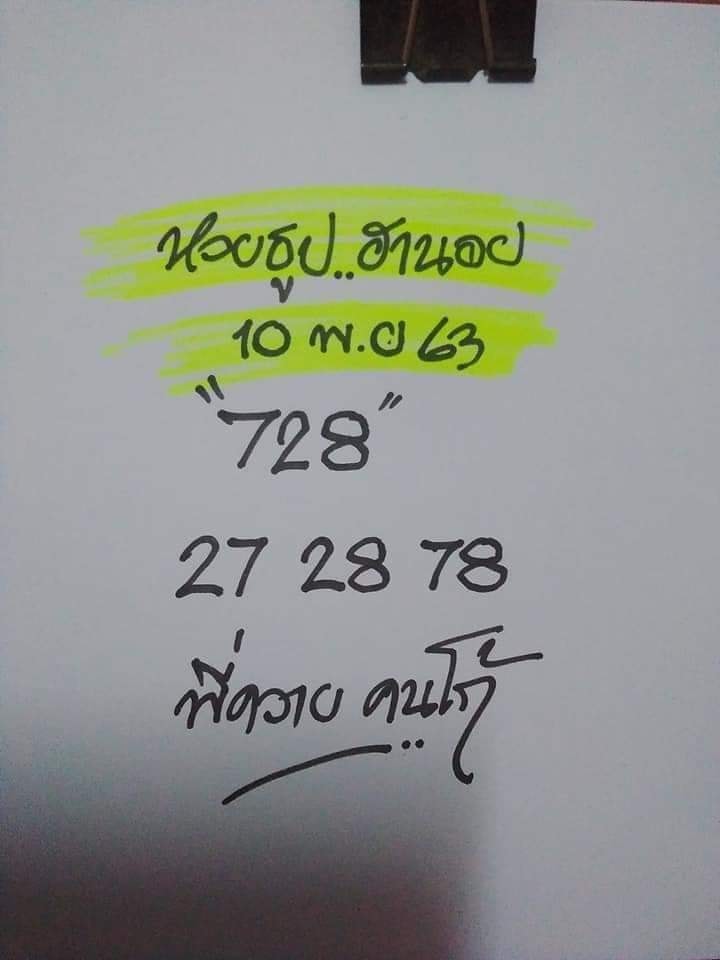 หวยธูป..ฮานอย
10 พ.ย 63
"728"
27 28 78
พี่ควาย คนโก้